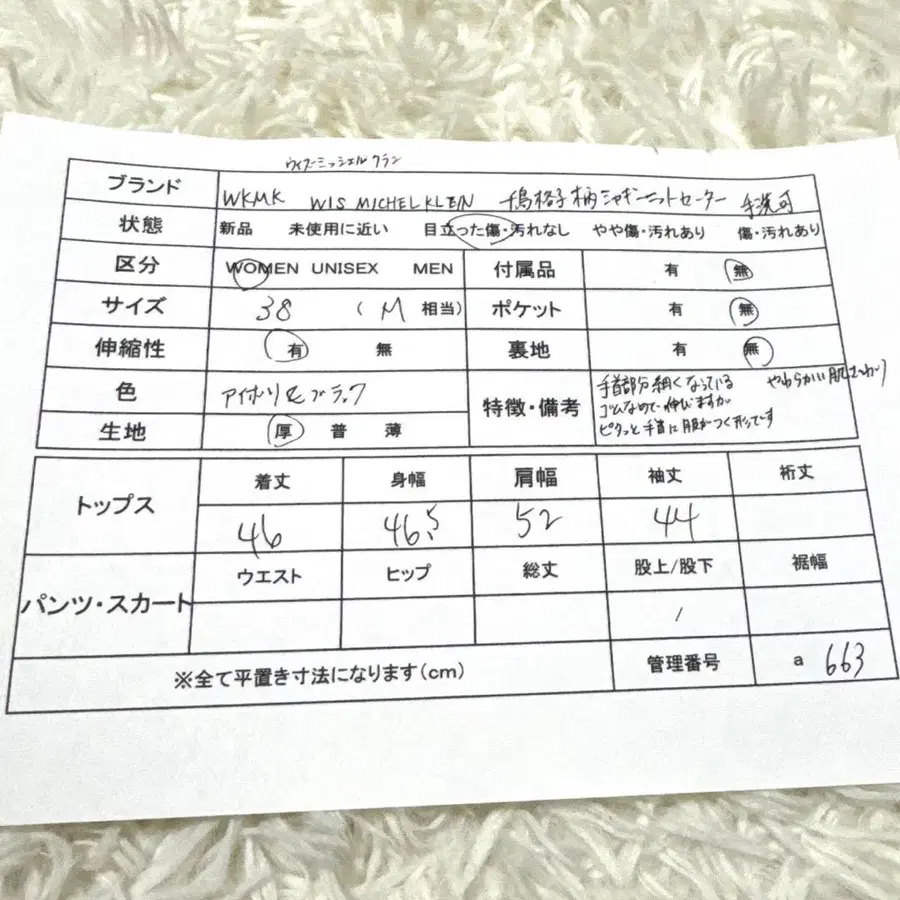 ウィズミッシェルクラン
ブランド WKMK WIS MICHEL KLEIN 千鳥格子柄シャギーニットセーター 手洗可
状態 新品 未使用に近い 目立った傷・汚れなし やや傷・汚れあり 傷・汚れあり
区分 WOMEN UNISEX MEN 付属品 有 無
サイズ 38 (M 相当) ポケット 有 無
伸縮性 有 無 裏地 有 無
色 アイボリー&ブラック 特徴・備考 手首部分細くなっている やわらかい肌ざわり
ゴムなので伸びますが
ピタっと手首に服がつく形です
生地 厚 普 薄
トップス 着丈 身幅 肩幅 袖丈 裄丈
46 46.5 52 44
パンツ・スカート ウエスト ヒップ 総丈 股上/股下 裾幅
/
※全て平置き寸法になります(cm) 管理番号 a 663